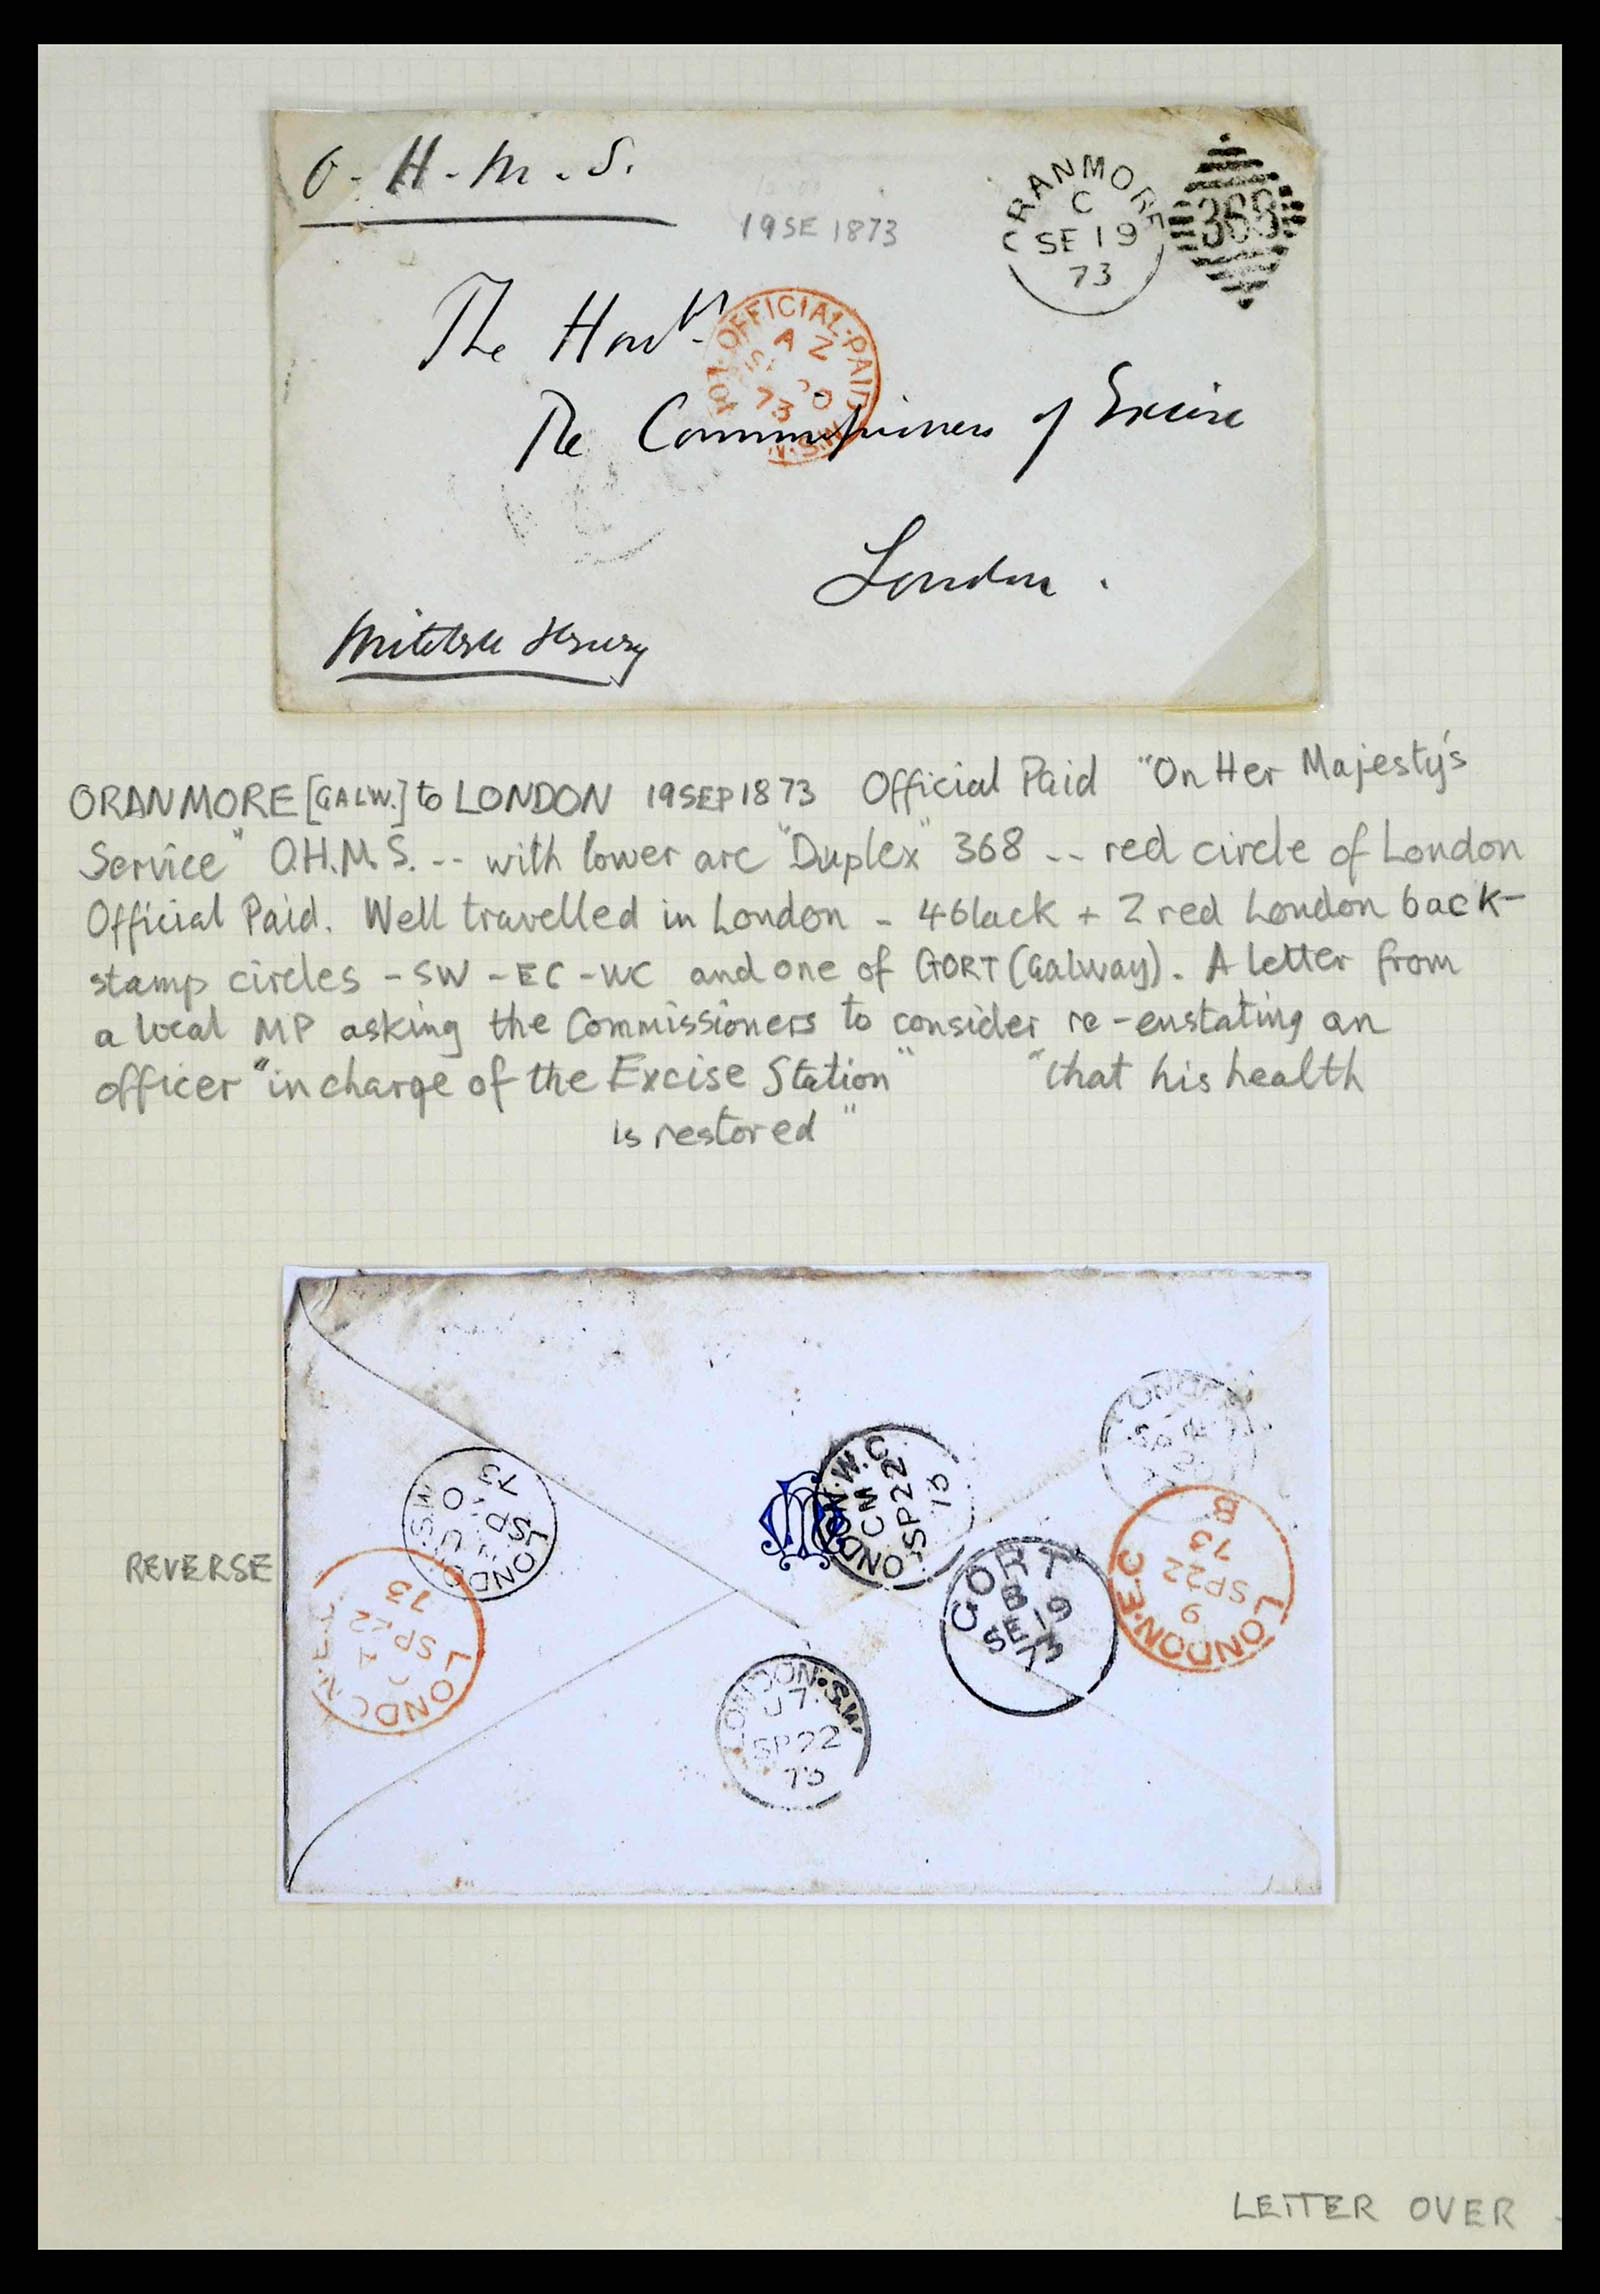 O. H. M. S.
19 SE 1873
ORANMORE
C
SE 19
73
368
The Honble
OFFICIAL·PAID
A Z
73
The Commissioners of Excise
London.
Mitchell Henry
ORANMORE [GALW.] to LONDON 19SEP1873 Official Paid "On Her Majesty's
Service" O.H.M.S. -- with lower arc "Duplex" 368 -- red circle of London
Official Paid. Well travelled in London - 4 black + 2 red London back-
stamp circles - SW - EC - WC and one of GORT (Galway). A letter from
a local MP asking the Commissioners to consider re-enstating an
officer "in charge of the Excise Station" "that his health
is restored"
REVERSE
LONDON S.W
73
LONDON.E.C
SP 22
73
LONDON.W.C
CM
SP 22
73
GORT
B
SE 19
73
LONDON.E.C
9
SP 22
73
B
LONDON.S.W
U 7
SP 22
73
LETTER OVER